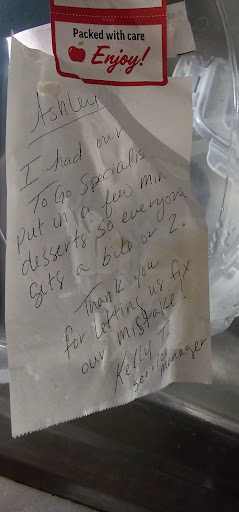 Packed with care
Enjoy!
Ashley
I had our
To Go Specialis
put in a few mini
desserts so everyone
gets a bite or 2.
Thank you
for letting us fix
our mistake!
Kelly
manager